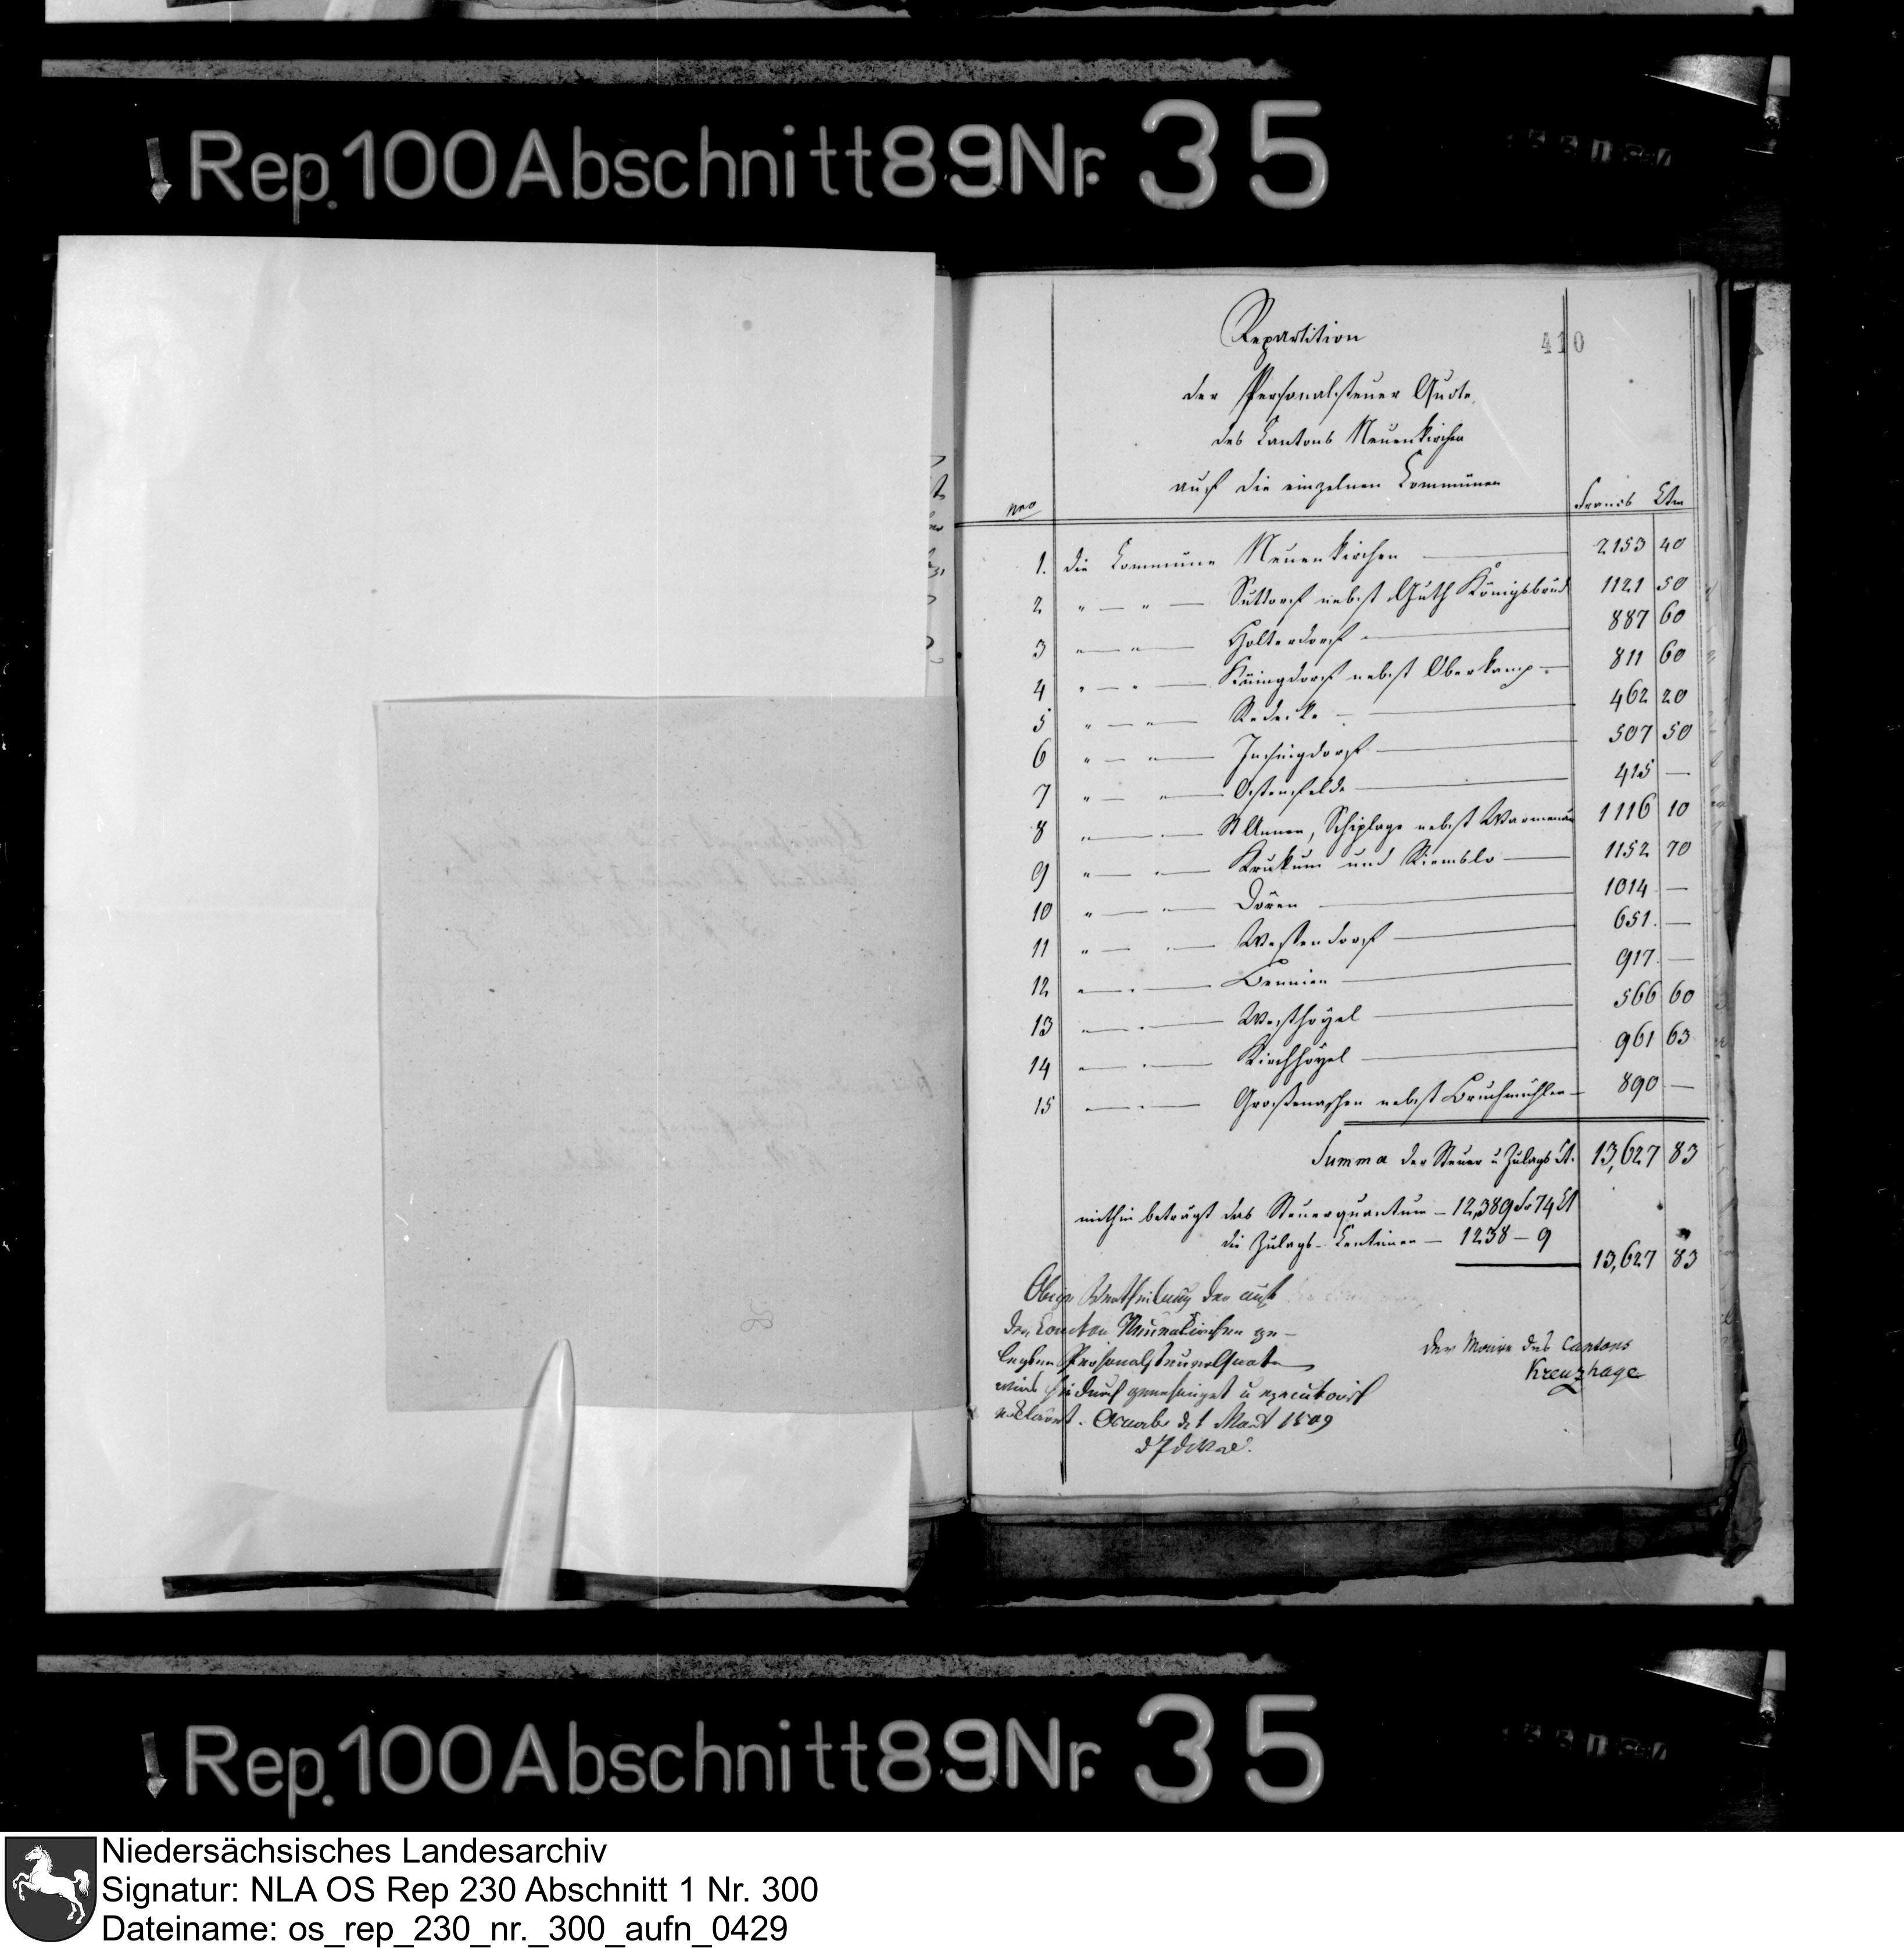 Rep. 100 Abschnitt 89 Nr. 35
410
Repartition
der Personalsteuer Quote
des Cantons Neuenkirchen
auf die einzelnen Communen
nro Francs Ctm
1. die Commune Neuenkirchen 2153 40
2 " — " — Suttorf nebst Guth Königsbrück 1121 50
3 " — " — Holterdorf 887 60
4 " — " — Küingdorf nebst Oberkamp 811 60
5 " — " — Redecke 462 20
6 " — " — Insingdorf 507 50
7 " — " — Ostenfelde 415 —
8 " — " — St Annen, Schiplage nebst Warmenau 1116 10
9 " — " — Krukum und Riemslo 1152 70
10 " — " — Dören 1014 —
11 " — " — Westendorf 651. —
12 " — " — Bennien 917 —
13 " — " — Westhoyel 566 60
14 " — " — Kirchhoyel 961 63
15 " — " — Großenaschen nebst Bruchmühlen 890 —
Summa der Steuer u Zulags Ct. 13,627 83
mithin beträgt das Steuerquantum — 12,389 Fr 74 Ct
die Zulags-Centimen — 1238 — 9
13,627 83
Obige Vertheilung der auf
den Canton Neuenkirchen ge-
legten Personalsteuer Quote
wird hiedurch genehmiget u executorisch
erklärt. Osnabr d 1 Mart 1809
Der Maire des Cantons
Kreuzhage
Rep. 100 Abschnitt 89 Nr. 35
Niedersächsisches Landesarchiv
Signatur: NLA OS Rep 230 Abschnitt 1 Nr. 300
Dateiname: os_rep_230_nr._300_aufn_0429